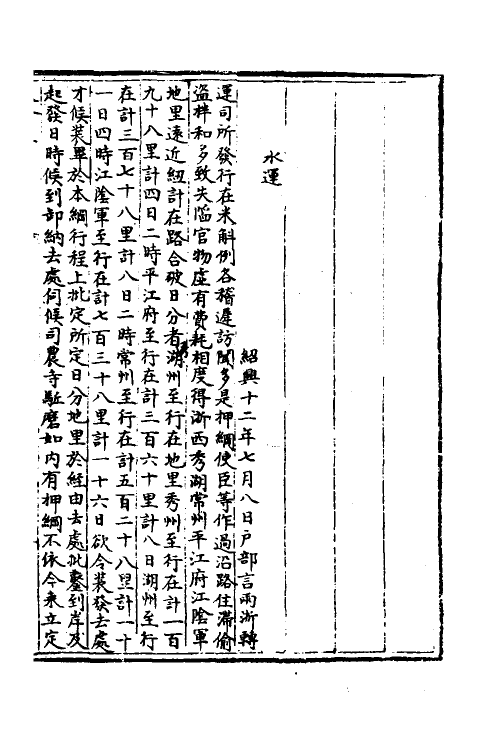 水運
紹興十二年七月八日戶部言兩浙轉
運司所發行在米斛例各稽遲訪聞多是押綱使臣等作過沿路住滯偷
盜拌和多致失陷官物虛有費耗相度得浙西秀湖常州平江府江陰軍
地里遠近紐計在路合破日分者湖州至行在地里秀州至行在計一百
九十八里計四日二時平江府至行在計三百六十里計八日湖州至行
在計三百七十八里計八日二時常州至行在計五百二十八里計一十
一日四時江陰軍至行在計七百三十八里計一十六日欲令裝發去處
才候裝畢於本綱行程上批定所定日分地里於經由去處批鑿到岸及
起發日時候到卸納去處伺候司農寺駈磨如內有押綱不依今來立定